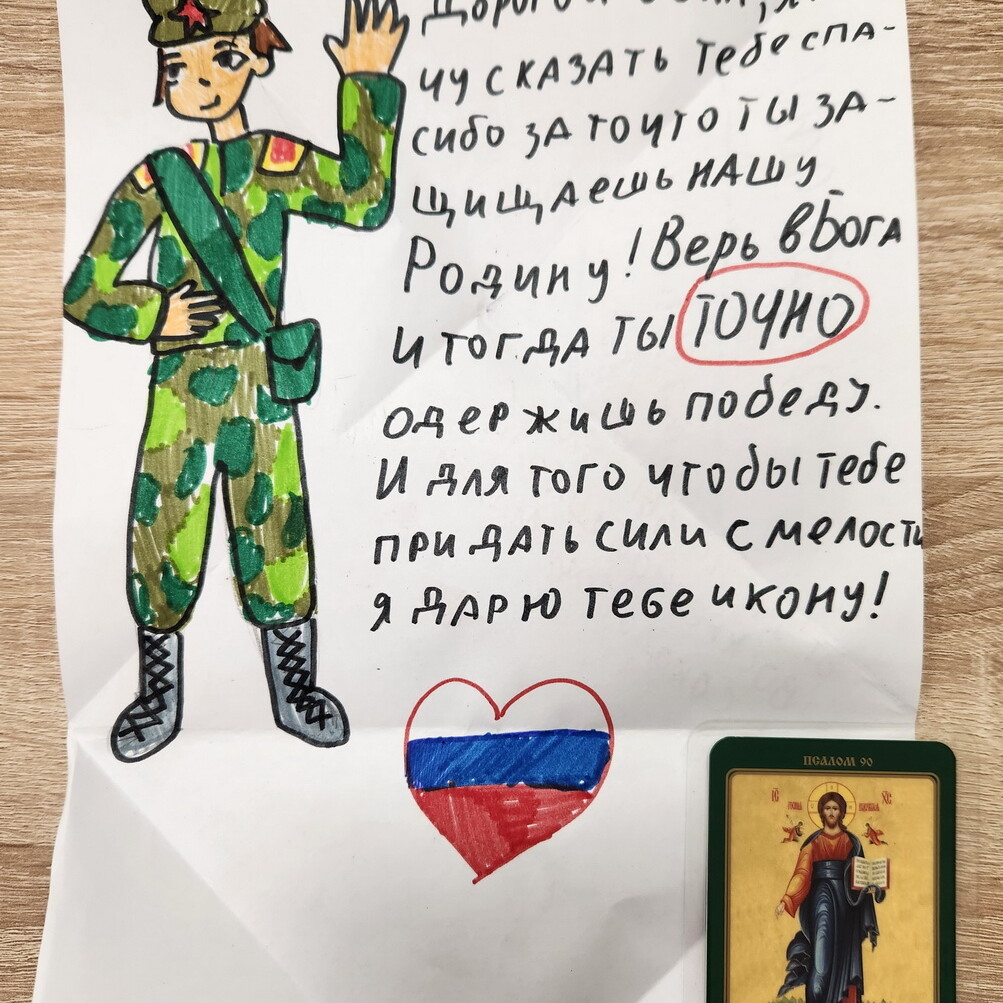 Дорогой
чу сказать тебе спа-
сибо за то что ты за-
щищаешь нашу
Родину! Верь в Бога
и тогда ты точно
одержишь победу.
И для того чтобы тебе
придать сили смелости
я дарю тебе икону!
ПСАЛОМ 90